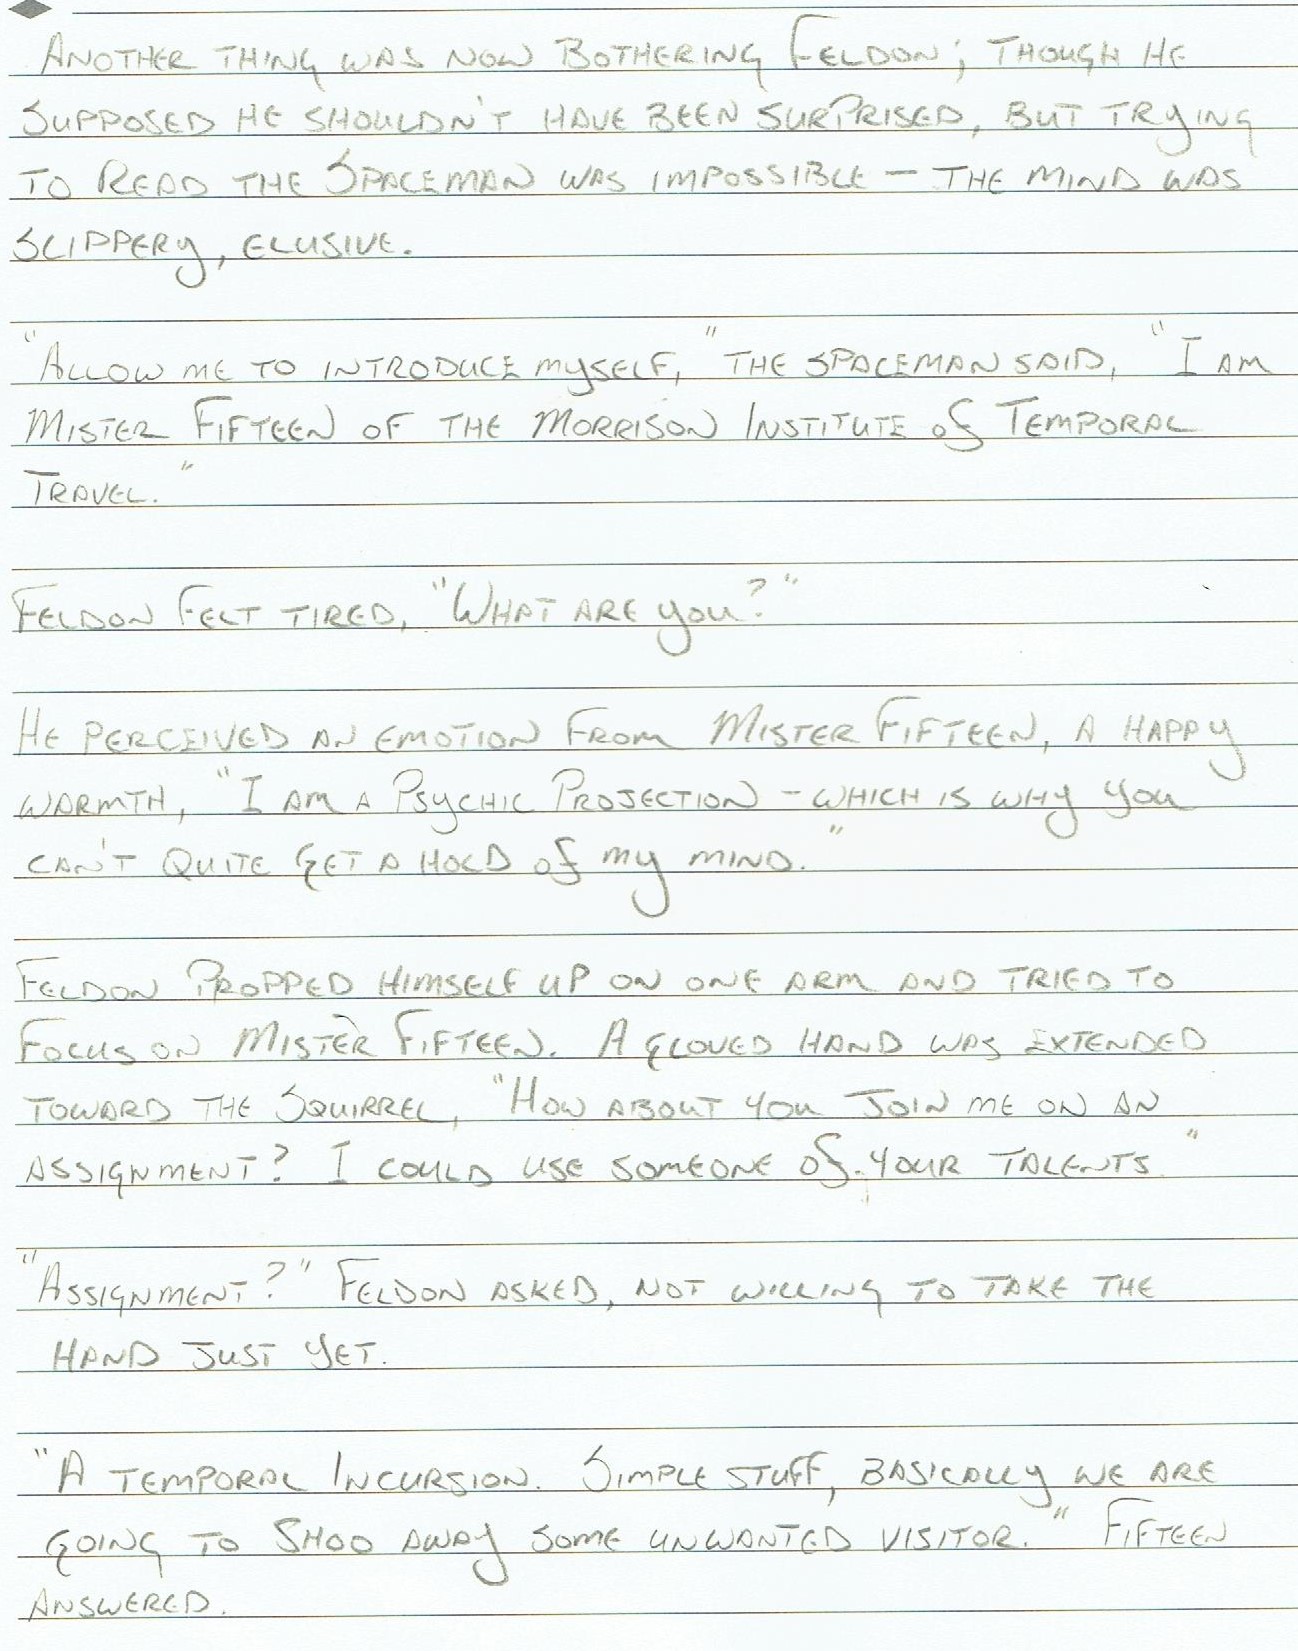 Another thing was now bothering Feldon; though he
supposed he shouldn't have been surprised, but trying
to read the Spaceman was impossible — the mind was
slippery, elusive.
"Allow me to introduce myself," the spaceman said, "I am
Mister Fifteen of the Morrison Institute of Temporal
Travel."
Feldon felt tired, "What are you?"
He perceived an emotion from Mister Fifteen, a happy
warmth, "I am a Psychic Projection – which is why you
can't quite get a hold of my mind."
Feldon propped himself up on one arm and tried to
focus on Mister Fifteen. A gloved hand was extended
toward the Squirrel, "How about you join me on an
assignment? I could use someone of your talents."
"Assignment?" Feldon asked, not willing to take the
hand just yet.
"A temporal Incursion. Simple stuff, basically we are
going to shoo away some unwanted visitor." Fifteen
answered.